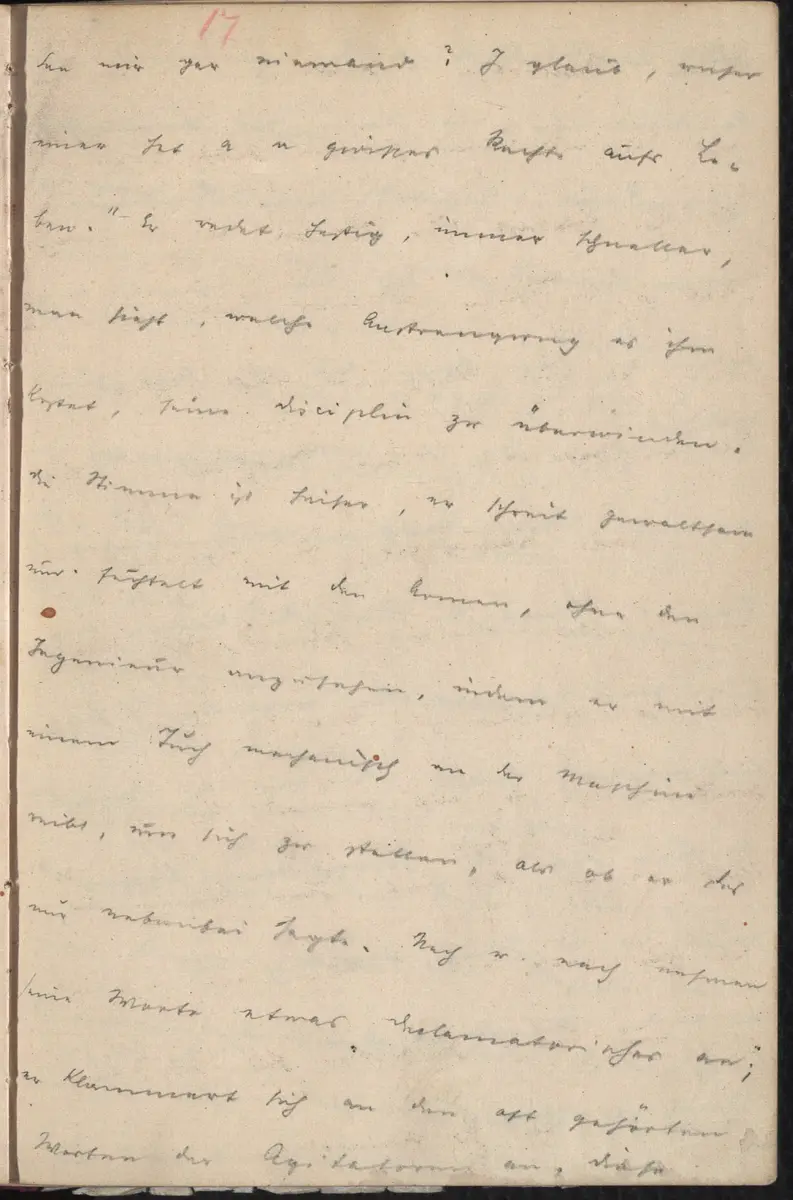 17
den mir gar niemand? I glaub, unser
einer hat a a gewisses Recht aufs Le-
ben." Er redet hastig, immer schneller,
man sieht, welche Anstrengung es ihm
kostet, seine Disciplin zu überwinden.
die Stimme ist heiser, er schreit gewaltsam
und fuchtelt mit den Armen, ohne den
Ingenieur anzusehen, indem er mit
einem Tuch mechanisch an der Maschine
reibt, um sich zu stellen, als ob er das
nur nebenbei sagte. Nach u. nach nehmen
seine Worte etwas declamatorisches an;
er klammert sich an den oft gehörten
Worten der Agitatoren an, diese